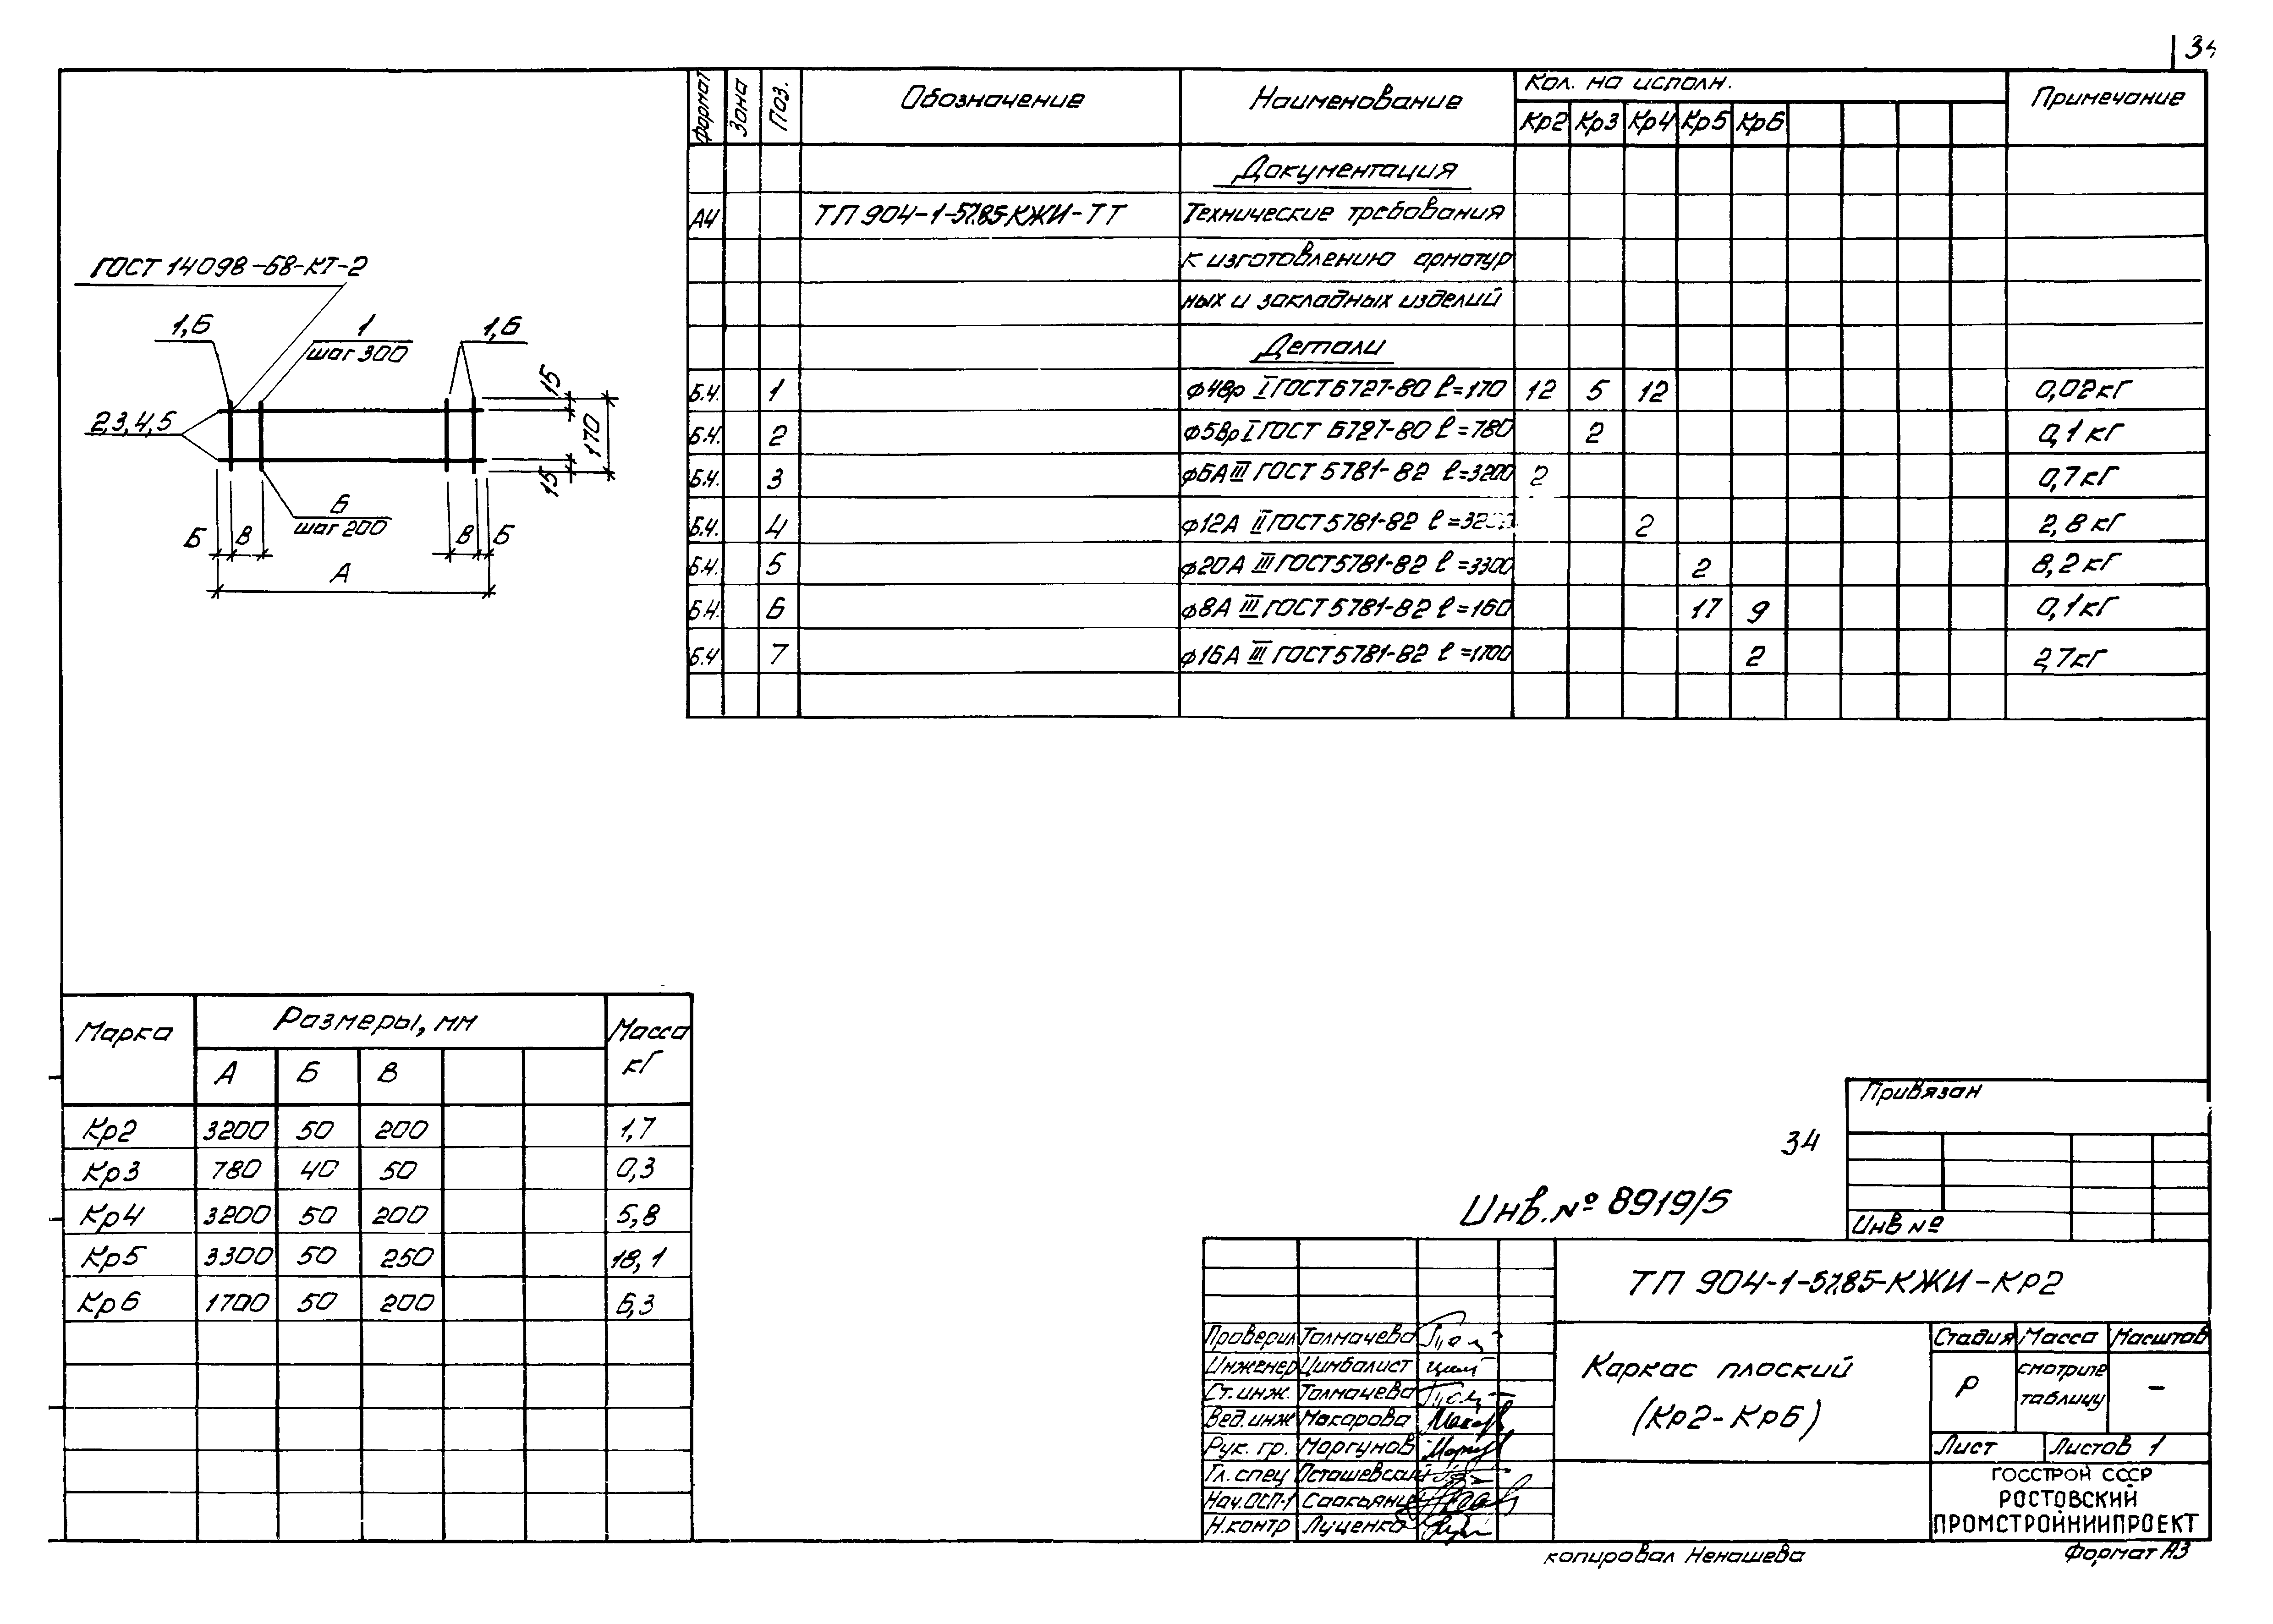 34
Формат Зона Поз. Обозначение Наименование Кол. на исполн. Примечание
Кр2 Кр3 Кр4 Кр5 Кр6
Документация
А4 ТП 904-1-57.85-КЖИ-ТТ Технические требования
к изготовлению арматур
ных и закладных изделий
Детали
Б.Ч. 1 ф4Вр I ГОСТ 6727-80 ℓ=170 12 5 12 0,02кг
Б.Ч. 2 ф5Вр I ГОСТ 6727-80 ℓ=780 2 0,1кг
Б.Ч. 3 ф6А III ГОСТ 5781-82 ℓ=3200 2 0,7кг
Б.Ч. 4 ф12А II ГОСТ 5781-82 2 2,8кг
Б.Ч. 5 ф20А III ГОСТ 5781-82 ℓ=3300 2 8,2кг
Б.Ч. 6 ф8А III ГОСТ 5781-82 ℓ=160 17 9 0,1кг
Б.Ч 7 ф16А III ГОСТ 5781-82 ℓ=1700 2 2,7кг
ГОСТ 14098-68-КТ-2
1,6 1 1,6
шаг 300
2,3,4,5
15
170
15
6
шаг 200
Б В В Б
А
Марка Размеры, мм Масса кг
А Б В
Кр2 3200 50 200 1,7
Кр3 780 40 50 0,3
Кр4 3200 50 200 5,8
Кр5 3300 50 250 18,1
Кр6 1700 50 200 6,3
Привязан
34
Инв. № 8919/5
Инв №
ТП 904-1-57.85-КЖИ-КР2
Проверил Толмачева
Инженер Цимбалист
Ст. инж. Толмачева
Вед. инж Макарова
Рук. гр. Моргунов
Гл. спец Осташевский
Нач. ОСП-1 Саакьянц
Н. контр Луценко
Каркас плоский
(Кр2-Кр6)
Стадия Масса Масштаб
Р смотрите таблицу –
Лист Листов 1
ГОССТРОЙ СССР
РОСТОВСКИЙ
ПРОМСТРОЙНИИПРОЕКТ
копировал Ненашева
Формат А3